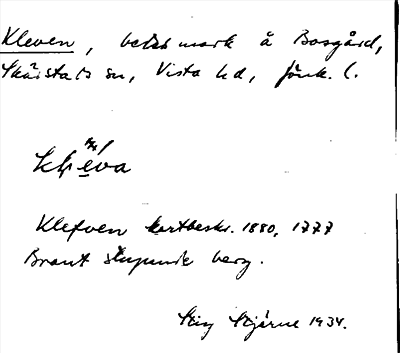 Kleven, betesmark å Bosgård,
Skärstads sn, Vista hd, Jönk. l.
klęva
Klefven kartbeskr. 1880, 1777
Brant stupande berg.
Stig Stjärne 1934.